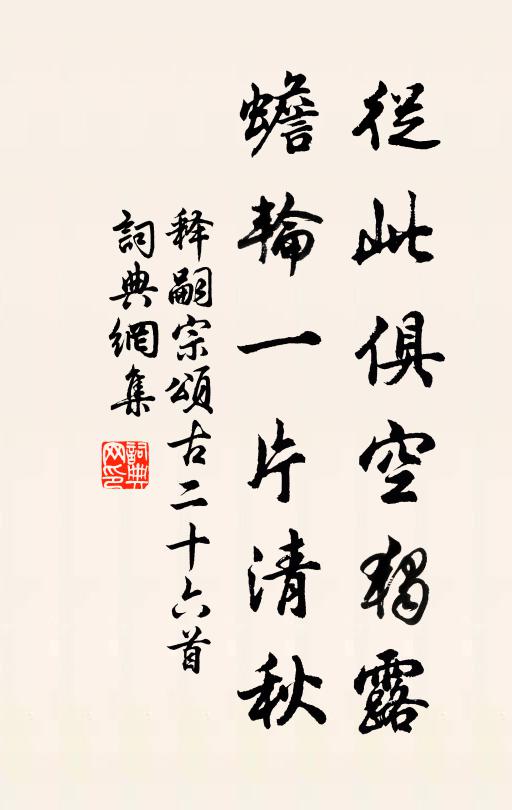 從此俱空獨露
蟾輪一片清秋
释嗣宗頌古二十六首
詞典網集
詞典网印